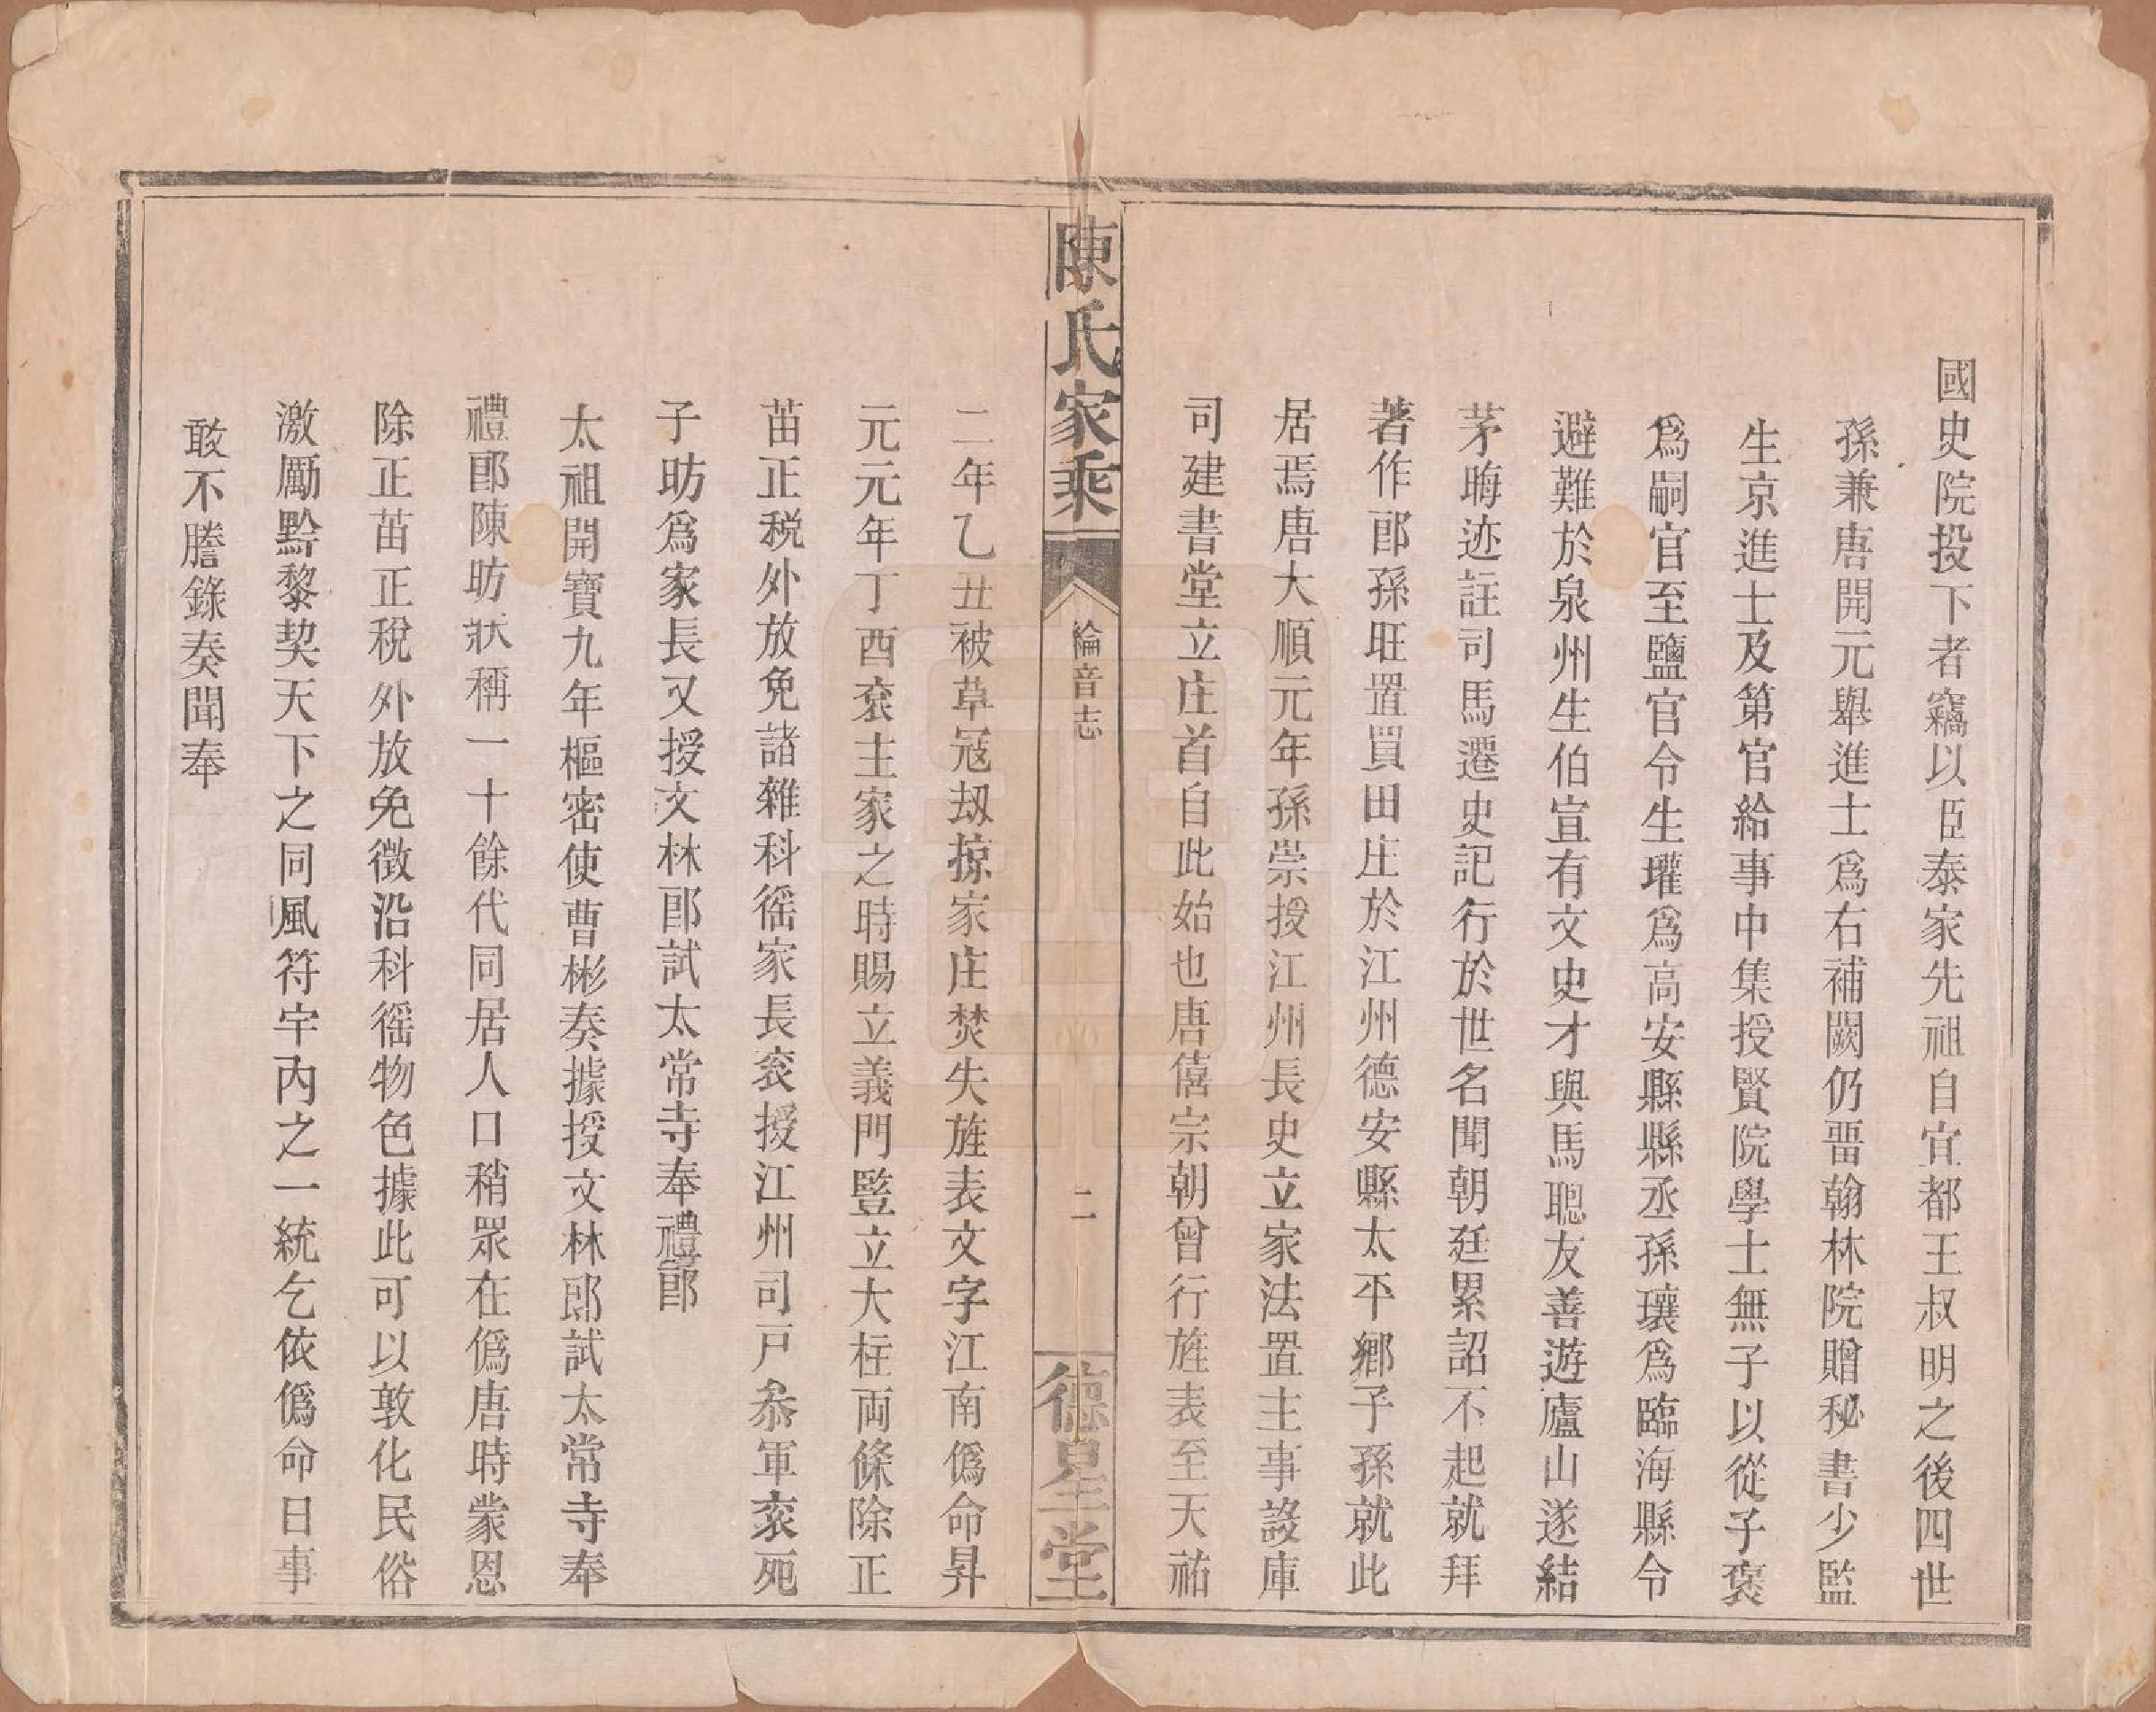 國史院投下者竊以臣泰家先祖自宜都王叔明之後四世
孫兼唐開元舉進士爲右補闕仍畱翰林院贈秘書少監
生京進士及第官給事中集授賢院學士無子以從子褒
爲嗣官至鹽官令生瓘爲高安縣縣丞孫瓌爲臨海縣令
避難於泉州生伯宣有文史才與馬聰友善遊廬山遂結
茅晦迹註司馬遷史記行於世名聞朝廷累詔不起就拜
著作郎孫旺置買田庄於江州德安縣太平鄉子孫就此
居焉唐大順元年孫崇授江州長史立家法置主事設庫
司建書堂立庄首自此始也唐僖宗朝曾行旌表至天祐
陳氏家乘
綸音志
二
德星堂
二年乙丑被草冦刼掠家庄焚失旌表文字江南僞命昇
元元年丁酉衮主家之時賜立義門豎立大柱両條除正
苗正税外放免諸雜科徭家長衮授江州司戸叅軍衮死
子昉爲家長又授文林郎試太常寺奉禮郎
太祖開寶九年樞密使曹彬奏據授文林郎試太常寺奉
禮郎陳昉狀稱一十餘代同居人口稍眾在僞唐時蒙恩
除正苗正税外放免徵沿科徭物色據此可以敦化民俗
激勵黔黎契天下之同風符宇內之一統乞依僞命日事
敢不謄錄奏聞奉